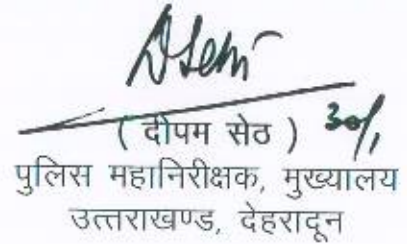 ( दीपम सेठ ) 30/1
पुलिस महानिरीक्षक, मुख्यालय
उत्तराखण्ड, देहरादून